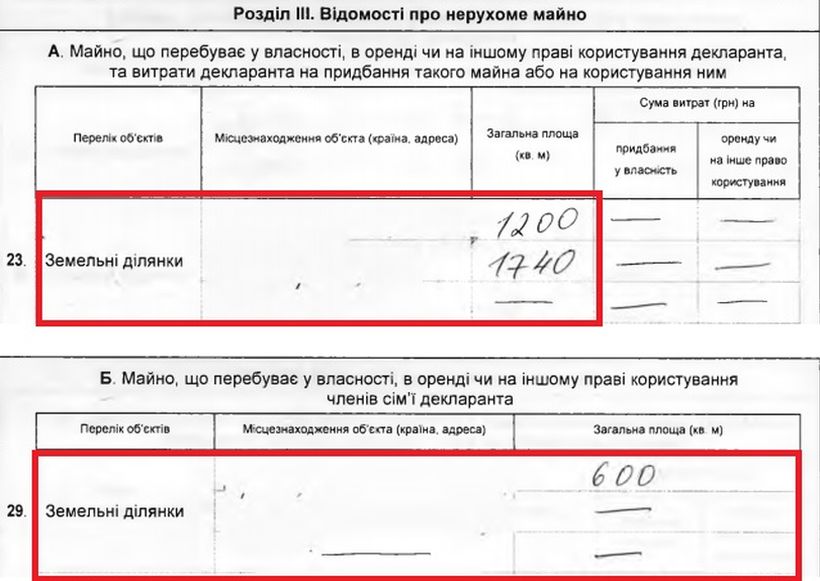 Розділ III. Відомості про нерухоме майно
А. Майно, що перебуває у власності, в оренді чи на іншому праві користування декларанта,
та витрати декларанта на придбання такого майна або на користування ним
Перелік об'єктів
Місцезнаходження об'єкта (країна, адреса)
Загальна площа
(кв. м)
Сума витрат (грн) на
придбання
у власність
оренду чи
на інше право
користування
23. Земельні ділянки
1200
1740
Б. Майно, що перебуває у власності, в оренді чи на іншому праві користування
членів сім'ї декларанта
Перелік об'єктів
Місцезнаходження об'єкта (країна, адреса)
Загальна площа (кв. м)
29. Земельні ділянки
600